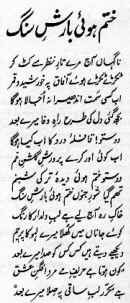 ختم ہوئی بارشِ سنگ
ناگہاں آج مرے تارِ نظر سے کٹ کر
ٹکڑے ٹکڑے ہوئے آفاق پہ خورشید و قمر
اب کسی سمت اندھیرا نہ اجالا ہوگا
بجھ گئی دل کی طرح راہِ وفا میرے بعد
دوستو! قافلۂ درد کا اب کیا ہوگا
اب کوئی اور کرے پرورشِ گلشنِ غم
دوستو ختم ہوئی دیدۂ تر کی شبنم
تھم گیا شورِ جنوں ختم ہوئی بارشِ سنگ
خاکِ رہ آج لیے ہے لبِ دلدار کا رنگ
کوئے جاناں میں کھلا میرے لہو کا پرچم
دیکھیے دیتے ہیں کس کس کو صدا میرے بعد
کون ہوتا ہے حریفِ مے مرد افگنِ عشق
ہے مکرر لبِ ساقی پہ صلا میرے بعد